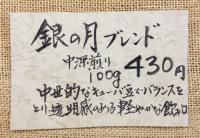 銀の月ブレンド
中深煎り
100g 430円
中世的なキューバ豆でバランスを
とり、透明感のある軽やかな飲み口